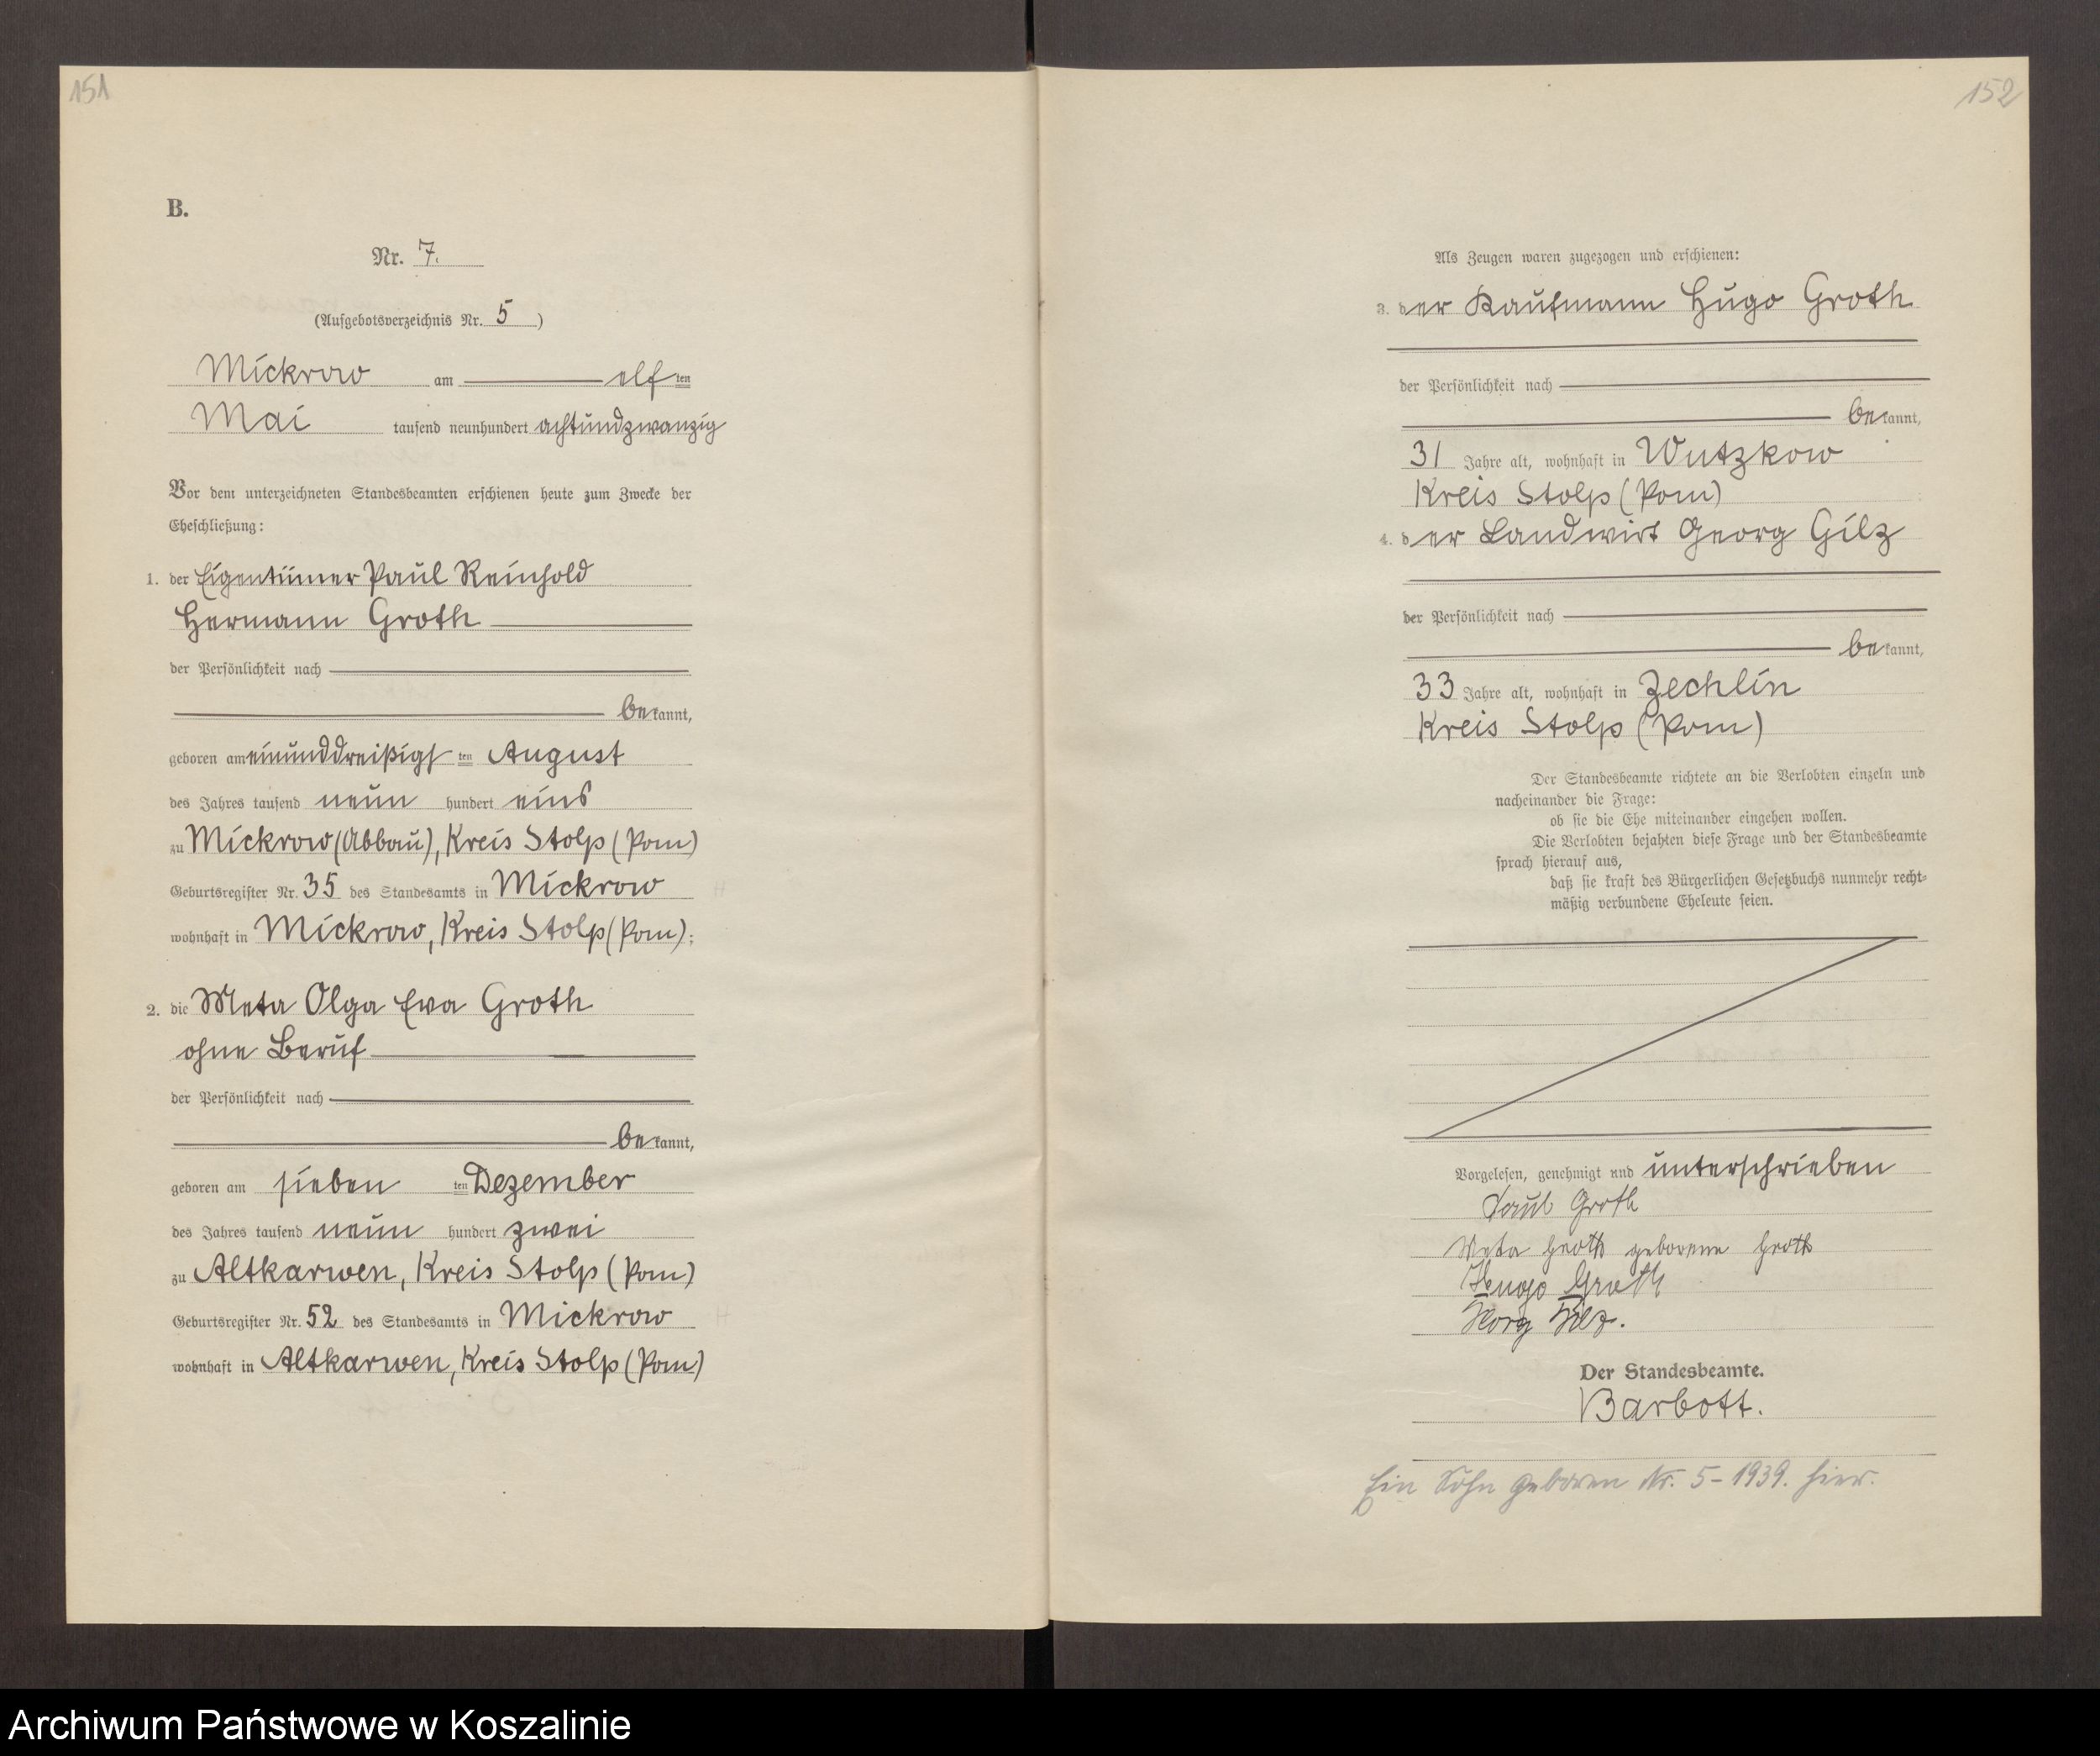 151
B.
Nr. 7.
(Aufgebotsverzeichnis Nr. 5)
Mickrow am elf ten
Mai tausend neunhundert achtundzwanzig
Vor dem unterzeichneten Standesbeamten erschienen heute zum Zwecke der
Eheschließung:
1. der Eigentümer Paul Reinhold
Hermann Groth
der Persönlichkeit nach
bekannt,
geboren am einunddreißigsten August
des Jahres tausend neun hundert eins
zu Mickrow (Abbau), Kreis Stolp (Pom)
Geburtsregister Nr. 35 des Standesamts in Mickrow
wohnhaft in Mickrow, Kreis Stolp (Pom);
2. die Meta Olga Eva Groth
ohne Beruf
der Persönlichkeit nach
bekannt,
geboren am sieben ten Dezember
des Jahres tausend neun hundert zwei
zu Altkarwen, Kreis Stolp (Pom)
Geburtsregister Nr. 52 des Standesamts in Mickrow
wohnhaft in Altkarwen, Kreis Stolp (Pom)
152
Als Zeugen waren zugezogen und erschienen:
3. der Kaufmann Hugo Groth
der Persönlichkeit nach
bekannt,
31 Jahre alt, wohnhaft in Wutzkow
Kreis Stolp (Pom)
4. der Landwirt Georg Gilz
der Persönlichkeit nach
bekannt,
33 Jahre alt, wohnhaft in Zechlin
Kreis Stolp (Pom)
Der Standesbeamte richtete an die Verlobten einzeln und
nacheinander die Frage:
ob sie die Ehe miteinander eingehen wollen.
Die Verlobten bejahten diese Frage und der Standesbeamte
sprach hierauf aus,
daß sie kraft des Bürgerlichen Gesetzbuchs nunmehr recht-
mäßig verbundene Eheleute seien.
Vorgelesen, genehmigt und unterschrieben
Paul Groth
Meta Groth geborene Groth
Hugo Groth
Georg Gilz.
Der Standesbeamte.
Barbott.
Ein Sohn geboren Nr. 5-1939. hier.
Archiwum Państwowe w Koszalinie